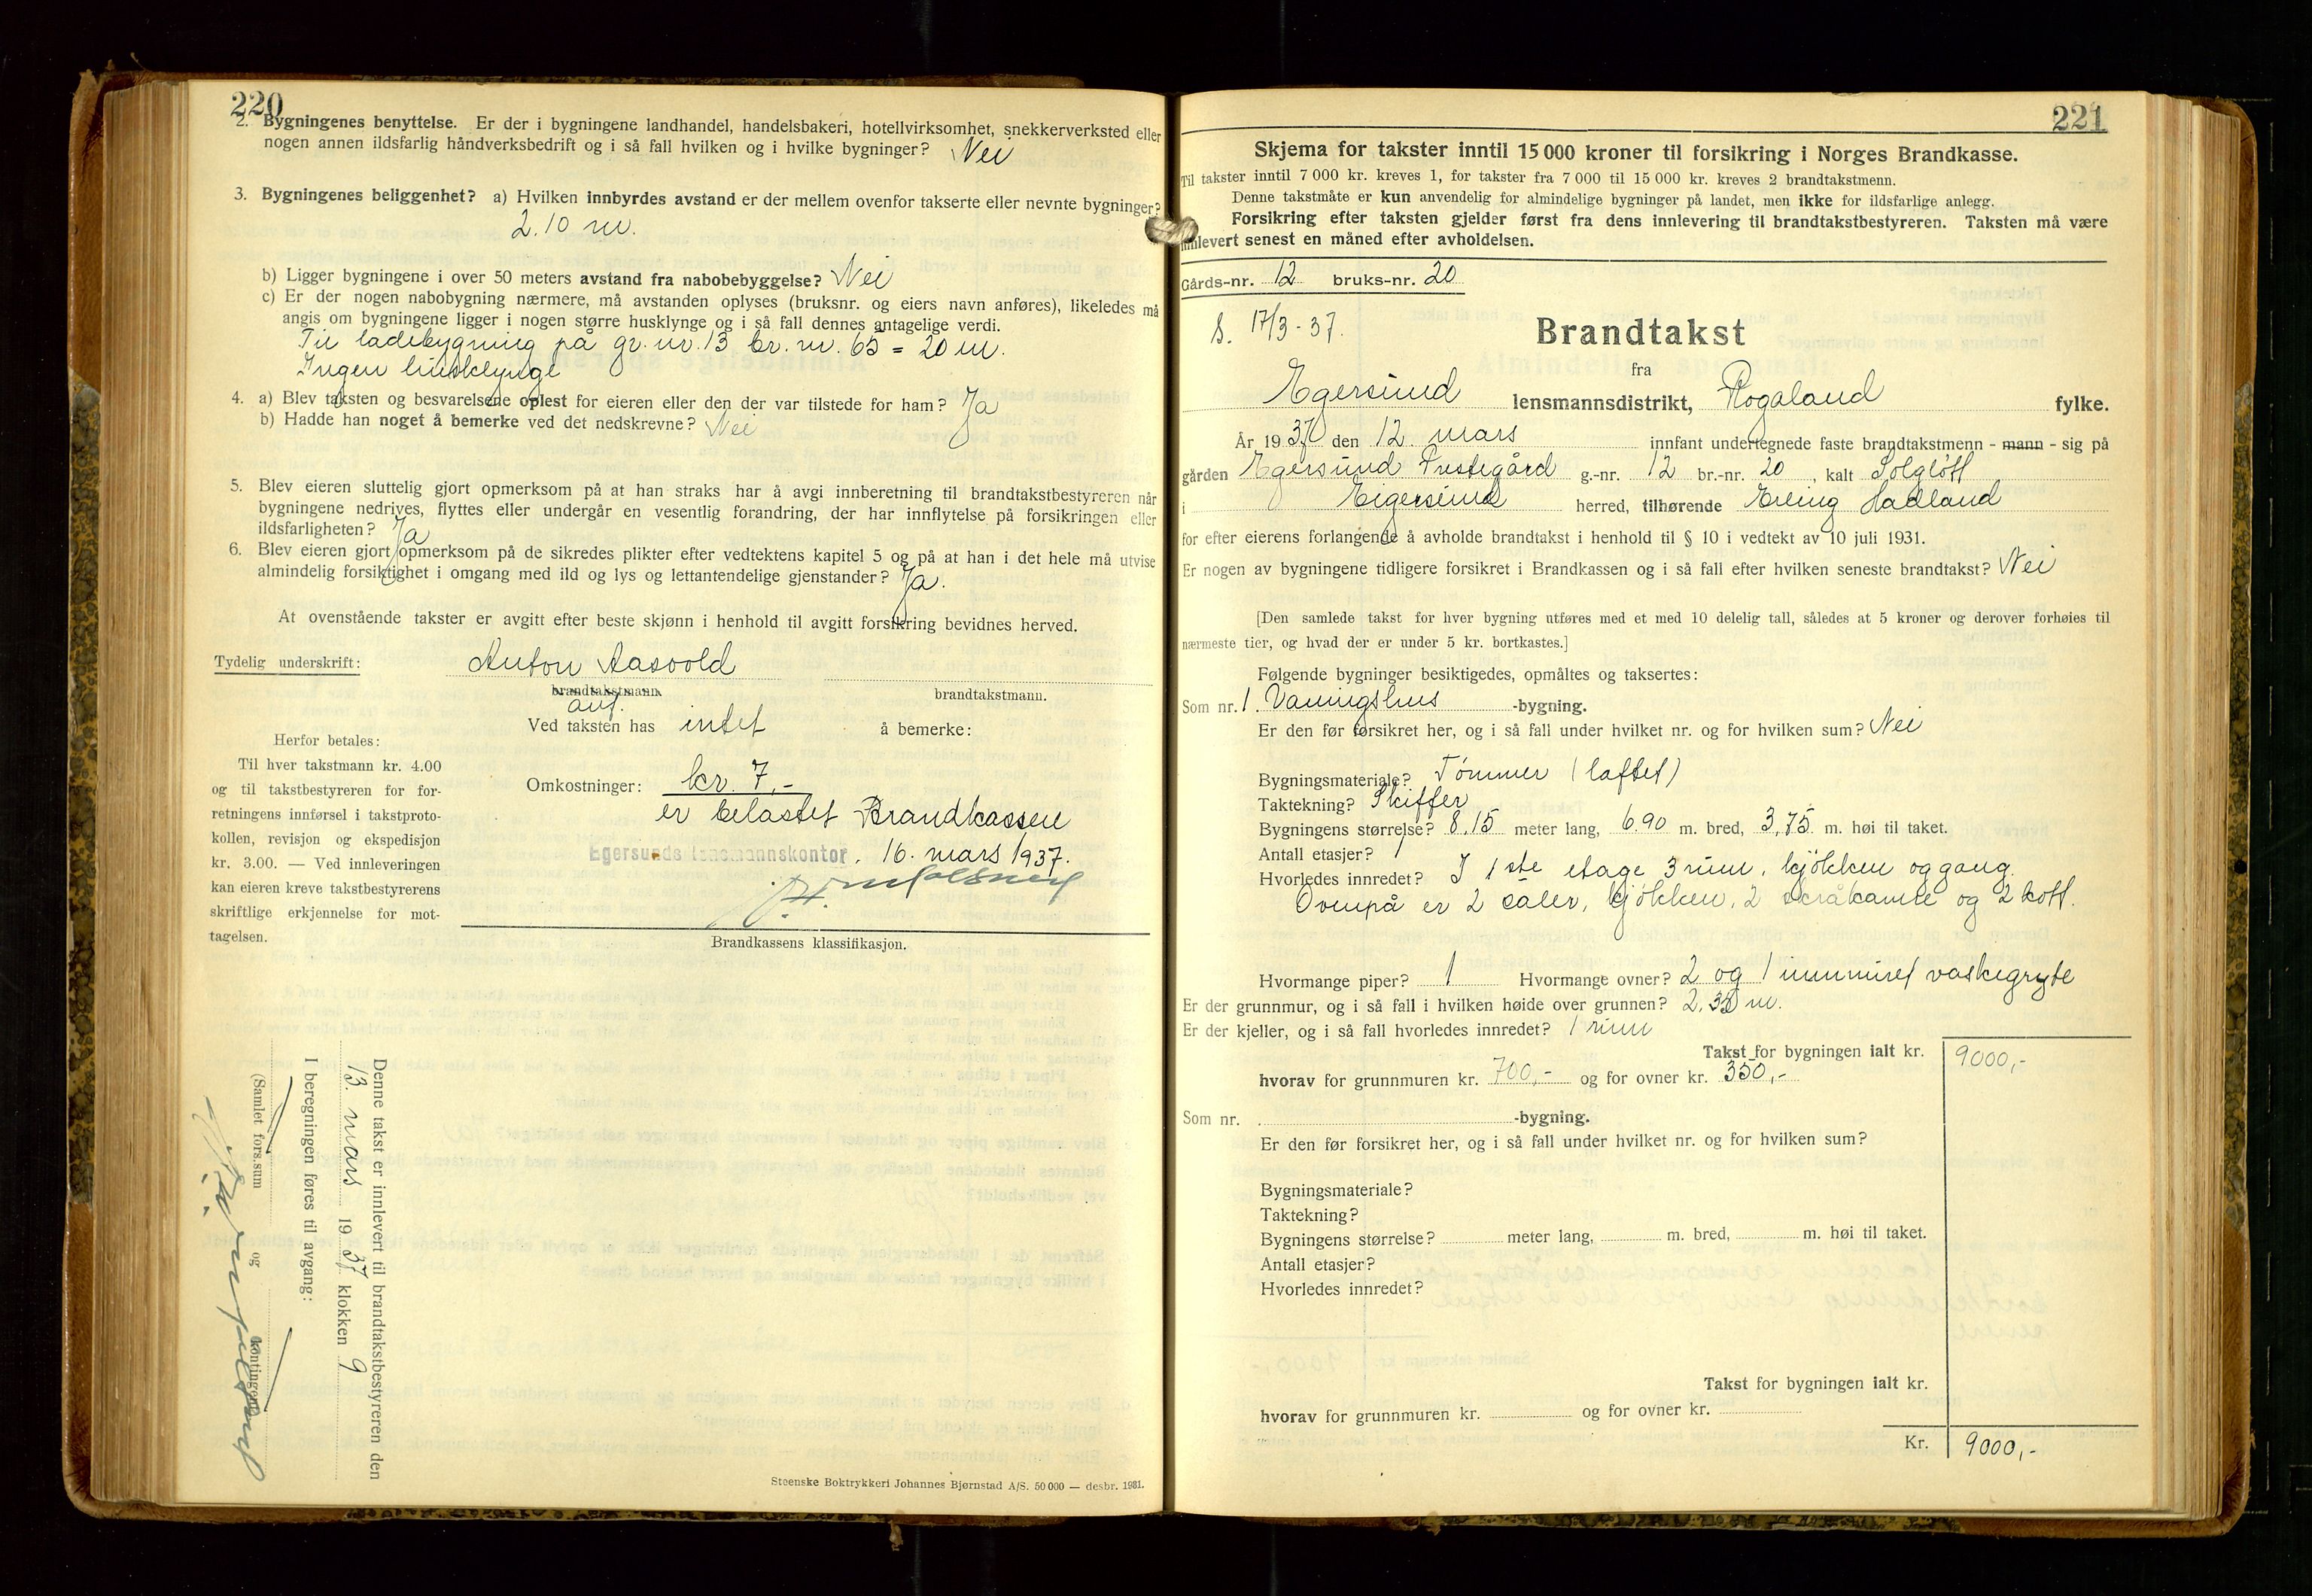 220
2. Bygningenes benyttelse. Er der i bygningene landhandel, handelsbakeri, hotellvirksomhet, snekkerverksted eller
nogen annen ildsfarlig håndverksbedrift og i så fall hvilken og i hvilke bygninger? Nei
3. Bygningenes beliggenhet? a) Hvilken innbyrdes avstand er der mellem ovenfor takserte eller nevnte bygninger?
2.10 m.
b) Ligger bygningene i over 50 meters avstand fra nabobebyggelse? Nei
c) Er der nogen nabobygning nærmere, må avstanden oplyses (bruksnr. og eiers navn anføres), likeledes må
angis om bygningene ligger i nogen større husklynge og i så fall dennes antagelige verdi.
Til ladebygning på gr. nr. 13 br. nr. 65 = 20 m.
Ingen husklynge
4. a) Blev taksten og besvarelsene oplest for eieren eller den der var tilstede for ham? Ja
b) Hadde han noget å bemerke ved det nedskrevne? Nei
5. Blev eieren sluttelig gjort opmerksom på at han straks har å avgi innberetning til brandtakstbestyreren når
bygningene nedrives, flyttes eller undergår en vesentlig forandring, der har innflytelse på forsikringen eller
ildsfarligheten? Ja
6. Blev eieren gjort opmerksom på de sikredes plikter efter vedtektens kapitel 5 og på at han i det hele må utvise
almindelig forsiktighet i omgang med ild og lys og lettantendelige gjenstander? Ja.
At ovenstående takster er avgitt efter beste skjønn i henhold til avgitt forsikring bevidnes herved.
Tydelig underskrift: Anton Aasvold
brandtakstmann. brandtakstmann.
Ved taksten has intet å bemerke:
Herfor betales:
Til hver takstmann kr. 4.00
og til takstbestyreren for for-
retningens innførsel i takstproto-
kollen, revisjon og ekspedisjon
kr. 3.00. — Ved innleveringen
kan eieren kreve takstbestyrerens
skriftlige erkjennelse for mot-
tagelsen.
Omkostninger: kr. 7,-
er belastet Brandkassen
Egersunds lensmannskontor. 16. mars 1937.
Brandkassens klassifikasjon.
Denne takst er innlevert til brandtakstbestyreren den
13. mars 1937 klokken 9
I beregningen føres til avgang:
(Samlet fors.sum og kontingent)
Steenske Boktrykkeri Johannes Bjørnstad A/S. 50 000 — desbr. 1931.
221
Skjema for takster inntil 15 000 kroner til forsikring i Norges Brandkasse.
Til takster inntil 7 000 kr. kreves 1, for takster fra 7 000 til 15 000 kr. kreves 2 brandtakstmenn.
Denne takstmåte er kun anvendelig for almindelige bygninger på landet, men ikke for ildsfarlige anlegg.
Forsikring efter taksten gjelder først fra dens innlevering til brandtakstbestyreren. Taksten må være
innlevert senest en måned efter avholdelsen.
Gårds-nr. 12 bruks-nr. 20
S. 17/3-37.
Brandtakst
fra
Egersund lensmannsdistrikt, Rogaland fylke.
År 1937 den 12. mars innfant undertegnede faste brandtakstmenn - mann - sig på
gården Egersund Prestegård g.-nr. 12 br.-nr. 20, kalt Solgløtt
i Eigersund herred, tilhørende Erling Hadland
for efter eierens forlangende å avholde brandtakst i henhold til § 10 i vedtekt av 10 juli 1931.
Er nogen av bygningene tidligere forsikret i Brandkassen og i så fall efter hvilken seneste brandtakst? Nei
[Den samlede takst for hver bygning utføres med et med 10 delelig tall, således at 5 kroner og derover forhøies til
nærmeste tier, og hvad der er under 5 kr. bortkastes.]
Følgende bygninger besiktigedes, opmåltes og taksertes:
Som nr. 1. Vaningshus -bygning.
Er den før forsikret her, og i så fall under hvilket nr. og for hvilken sum? Nei
Bygningsmateriale? Tømmer (laftet)
Taktekning? Skiffer
Bygningens størrelse? 8.15 meter lang, 6.90 m. bred, 3,75 m. høi til taket.
Antall etasjer? 1
Hvorledes innredet? I 1ste etage 3 rum, kjøkken og gang.
Ovenpå er 2 saler, kjøkken, 2 skråkamre og 2 kott.
Hvormange piper? 1 Hvormange ovner? 2 og 1 innmuret vaskegryte
Er der grunnmur, og i så fall i hvilken høide over grunnen? 2,30 m.
Er der kjeller, og i så fall hvorledes innredet? 1 rum
Takst for bygningen ialt kr. 9000,-
hvorav for grunnmuren kr. 700,- og for ovner kr. 350,-
Som nr. -bygning.
Er den før forsikret her, og i så fall under hvilket nr. og for hvilken sum?
Bygningsmateriale?
Taktekning?
Bygningens størrelse? meter lang, m. bred, m. høi til taket.
Antall etasjer?
Hvorledes innredet?
Takst for bygningen ialt kr.
hvorav for grunnmuren kr. og for ovner kr.
Kr. 9000,-